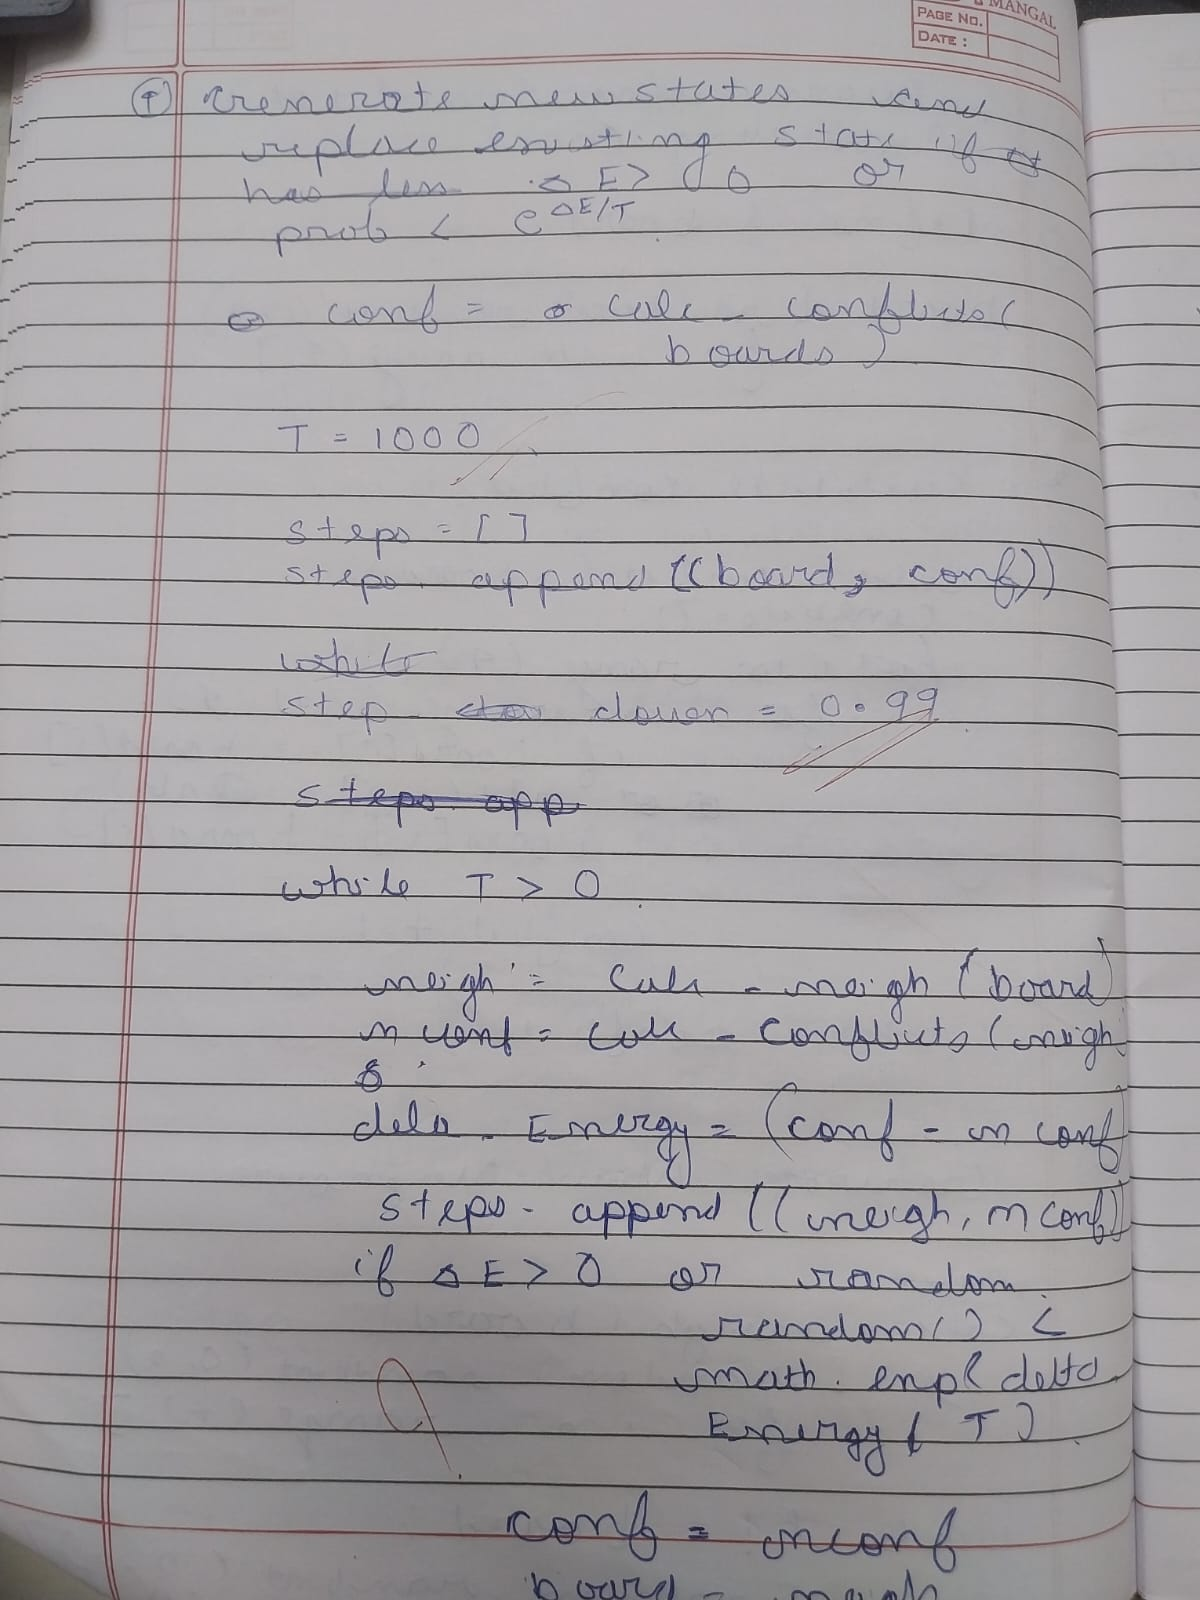 MANGAL
PAGE NO.
DATE :
Generate new states and
replace existing state if
has less Δ E > 0 or
prob < e^ΔE/T
conf = calc - conflicts (
boards)
T = 1000
steps = [ ]
steps. append ((board, conf))
while
step - down = 0.99
steps. app
while T > 0
neigh = Calc - neigh (board)
nconf = calc - conflicts (neigh
dela - Energy = (conf - nconf
steps. append ((neigh, nconf))
if Δ E > 0 or random.
random() <
math. exp( delta
Energy / T)
conf = nconf
board = neigh